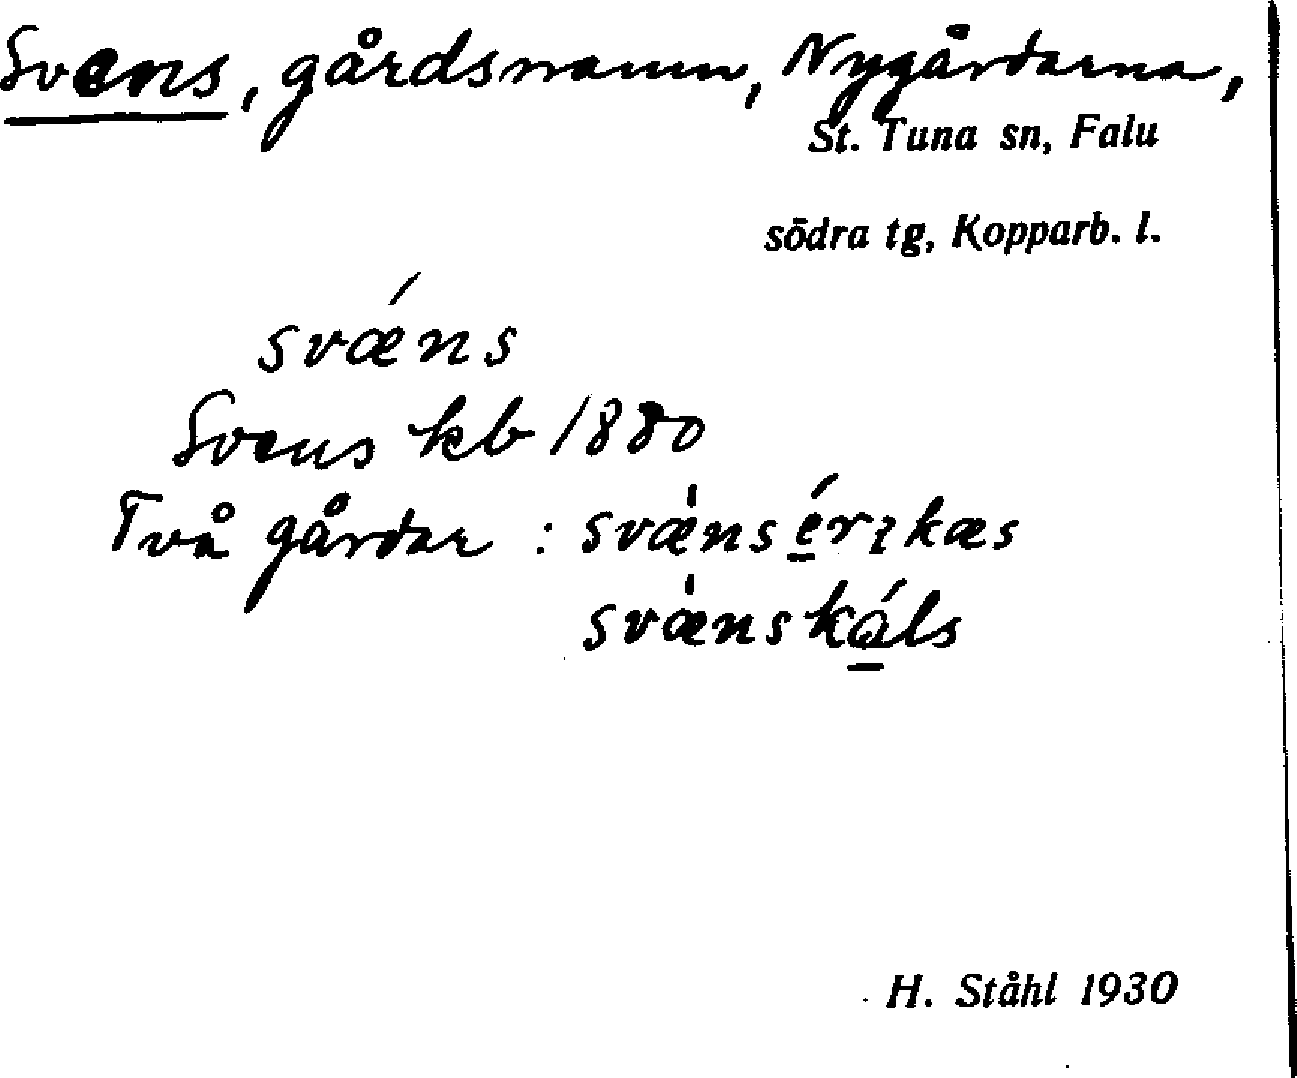 Svens, gårdsnamn, Nygårdarna,
St. Tuna sn, Falu
södra tg, Kopparb. l.
svǽns
Svens kb 1880
Två gårdar : svæ̀nsé̱rɩkæs
svæ̀nskά̱ls
H. Ståhl 1930